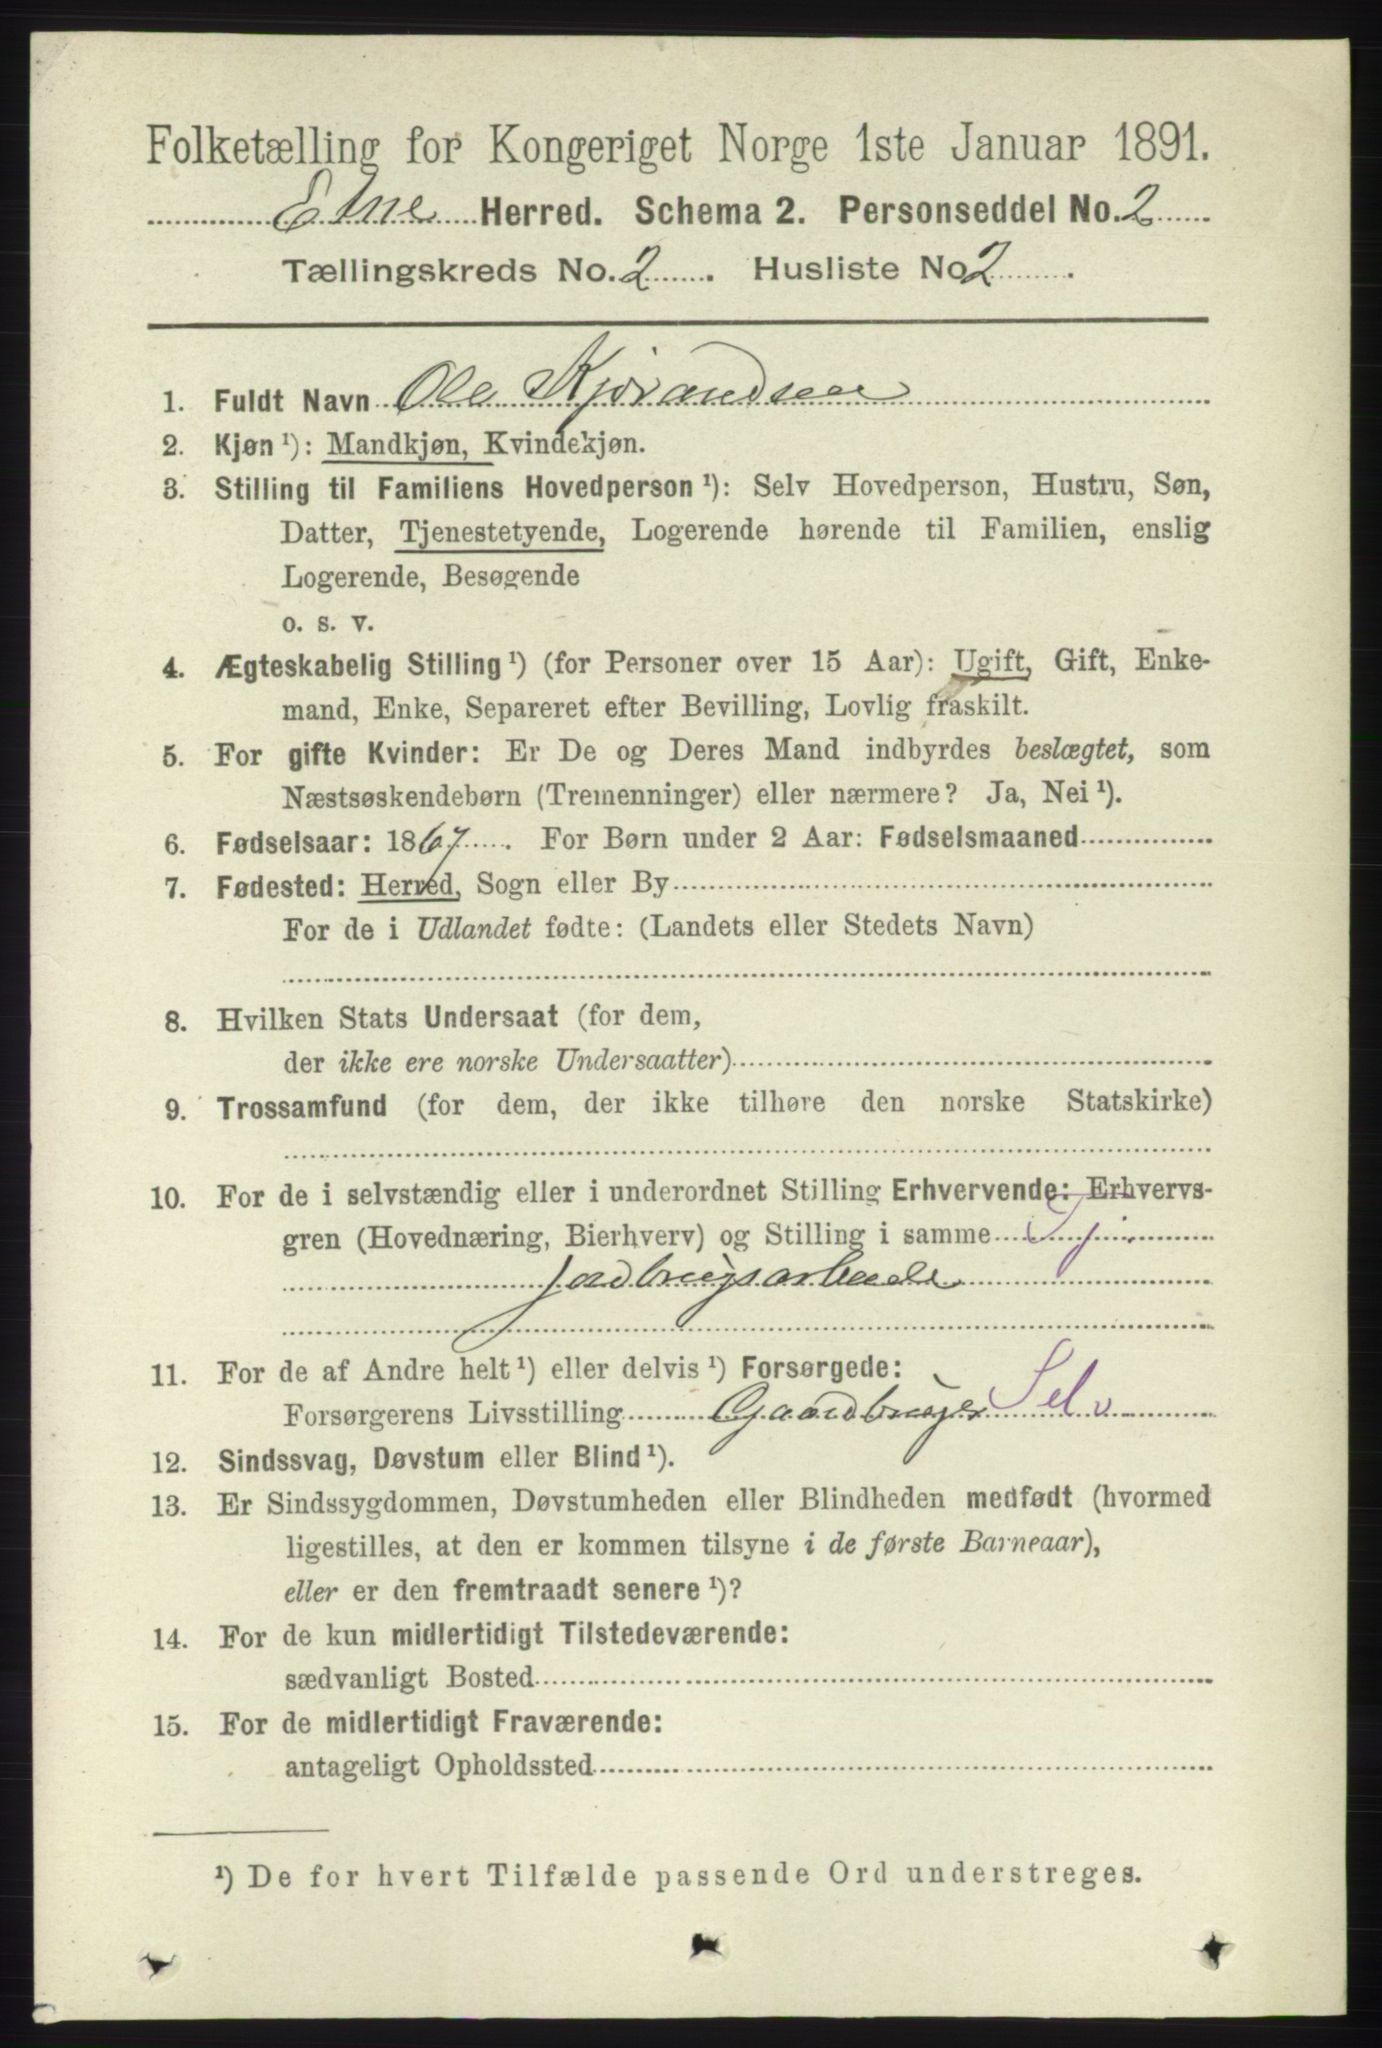 Folketælling for Kongeriget Norge 1ste Januar 1891.
Etne Herred. Schema 2. Personseddel No. 2
Tællingskreds No. 2 . Husliste No 2 .
1. Fuldt Navn Ole Kjørandsen
2. Kjøn ¹): Mandkjøn, Kvindekjøn.
3. Stilling til Familiens Hovedperson ¹): Selv Hovedperson, Hustru, Søn,
Datter, Tjenestetyende, Logerende hørende til Familien, enslig
Logerende, Besøgende
o. s. v.
4. Ægteskabelig Stilling ¹) (for Personer over 15 Aar): Ugift, Gift, Enke-
mand, Enke, Separeret efter Bevilling, Lovlig fraskilt.
5. For gifte Kvinder: Er De og Deres Mand indbyrdes beslægtet, som
Næstsøskendebørn (Tremenninger) eller nærmere? Ja, Nei ¹).
6. Fødselsaar: 1867 . For Børn under 2 Aar: Fødselsmaaned
7. Fødested: Herred, Sogn eller By
For de i Udlandet fødte: (Landets eller Stedets Navn)
8. Hvilken Stats Undersaat (for dem,
der ikke ere norske Undersaatter)
9. Trossamfund (for dem, der ikke tilhøre den norske Statskirke)
10. For de i selvstændig eller i underordnet Stilling Erhvervende: Erhvervs-
gren (Hovednæring, Bierhverv) og Stilling i samme Tj.
Jordbrugsarbeide
11. For de af Andre helt ¹) eller delvis ¹) Forsørgede:
Forsørgerens Livsstilling Gaardbruger Selv
12. Sindssvag, Døvstum eller Blind ¹).
13. Er Sindssygdommen, Døvstumheden eller Blindheden medfødt (hvormed
ligestilles, at den er kommen tilsyne i de første Barneaar),
eller er den fremtraadt senere ¹)?
14. For de kun midlertidigt Tilstedeværende:
sædvanligt Bosted
15. For de midlertidigt Fraværende:
antageligt Opholdssted
¹) De for hvert Tilfælde passende Ord understreges.